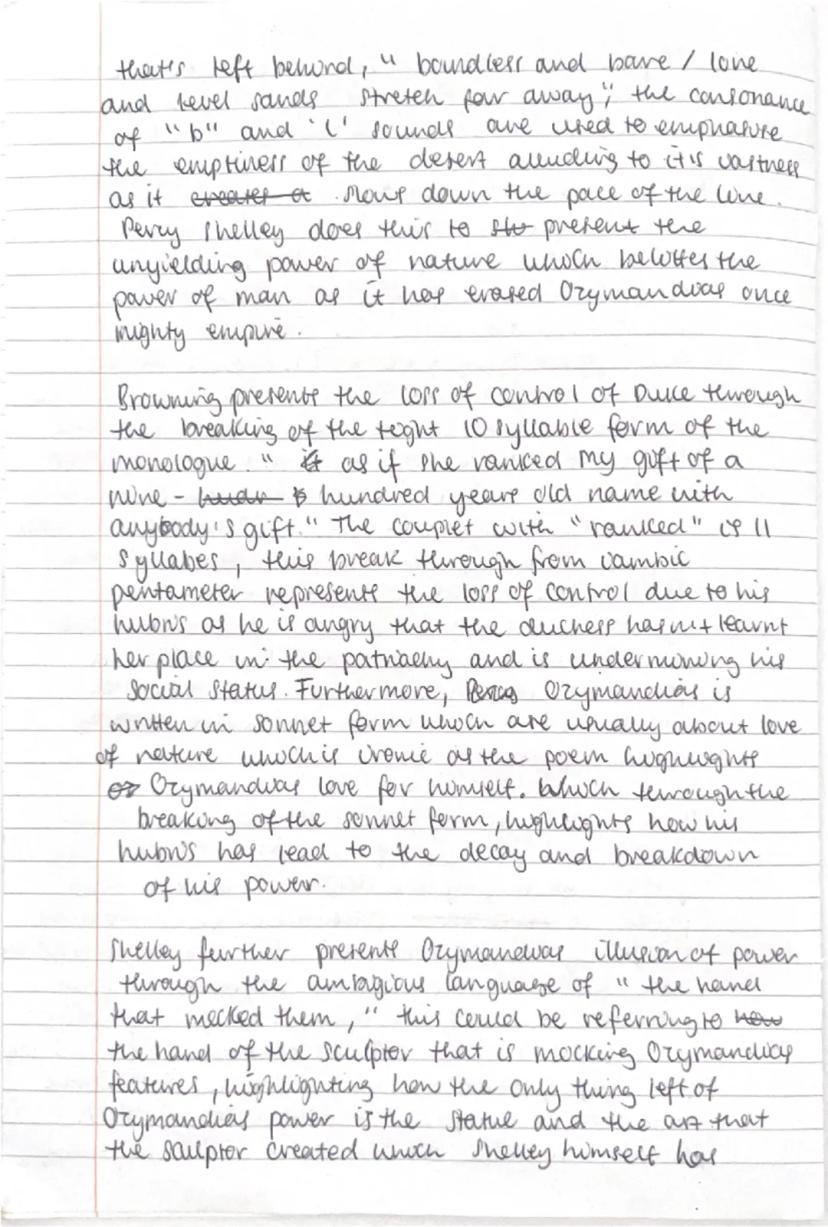 that's left behind, " boundless and bare / lone
and level sands stretch far away", the consonance
of "b" and 'l' sounds are used to emphasise
the emptiness of the desert alluding to it's vastness
as it creates a slows down the pace of the line.
Percy Shelley does this to sho present the
unyielding power of nature which belittles the
power of man as it has erased Ozymandias once
mighty empire.
Browning presents the loss of control of Duke through
the breaking of the tight 10 syllable form of the
monologue. " as if she ranked my gift of a
nine - hundr hundred years old name with
anybody's gift." The couplet with "ranked" is 11
syllabes, this break through from iambic
pentameter represents the loss of control due to his
hubris as he is angry that the duchess hasn't learnt
her place in the patriachy and is undermining his
social status. Furthermore, Percy Ozymandias is
written in sonnet form which are usually about love
of nature which is ironic as the poem highlights
Ozymandias love for himself. Which through the
breaking of the sonnet form, highlights how his
hubris has lead to the decay and breakdown
of his power.
Shelley further presents Ozymandias illusion of power
through the ambigious language of " the hand
that mocked them," this could be referring to how
the hand of the sculptor that is mocking Ozymandias
features, highlighting how the only thing left of
Ozymandias power is the statue and the art that
the sculptor created which Shelley himself has